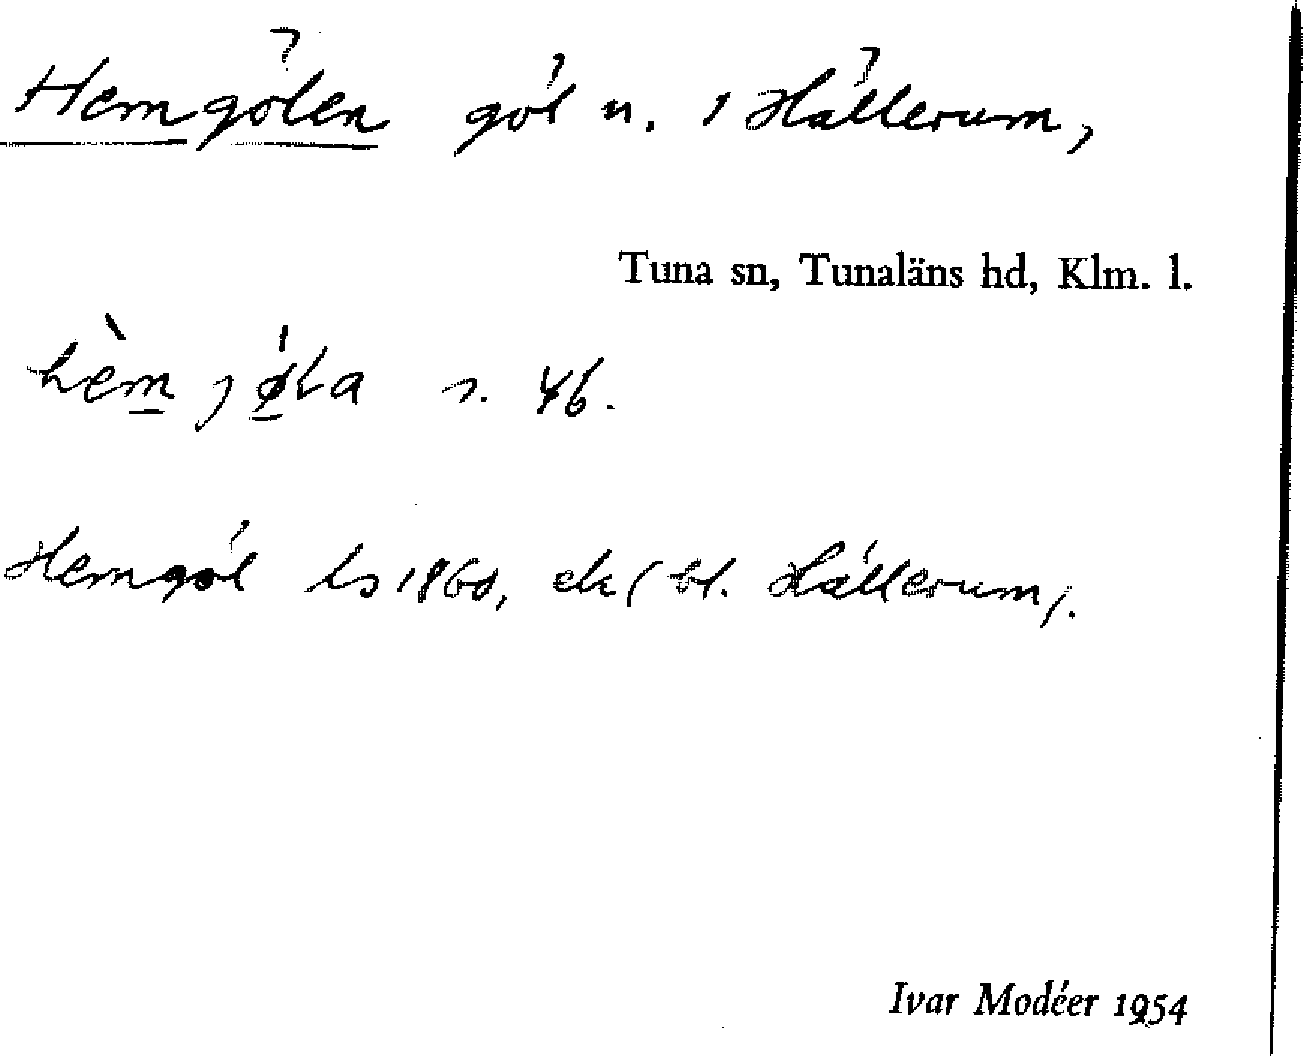 Hemgölen göl n. i Hällerum,
Tuna sn, Tunaläns hd, Klm. l.
s. 46.
Hemgöl ls 1860, ek (bl. Hällerum).
Ivar Modéer 1954